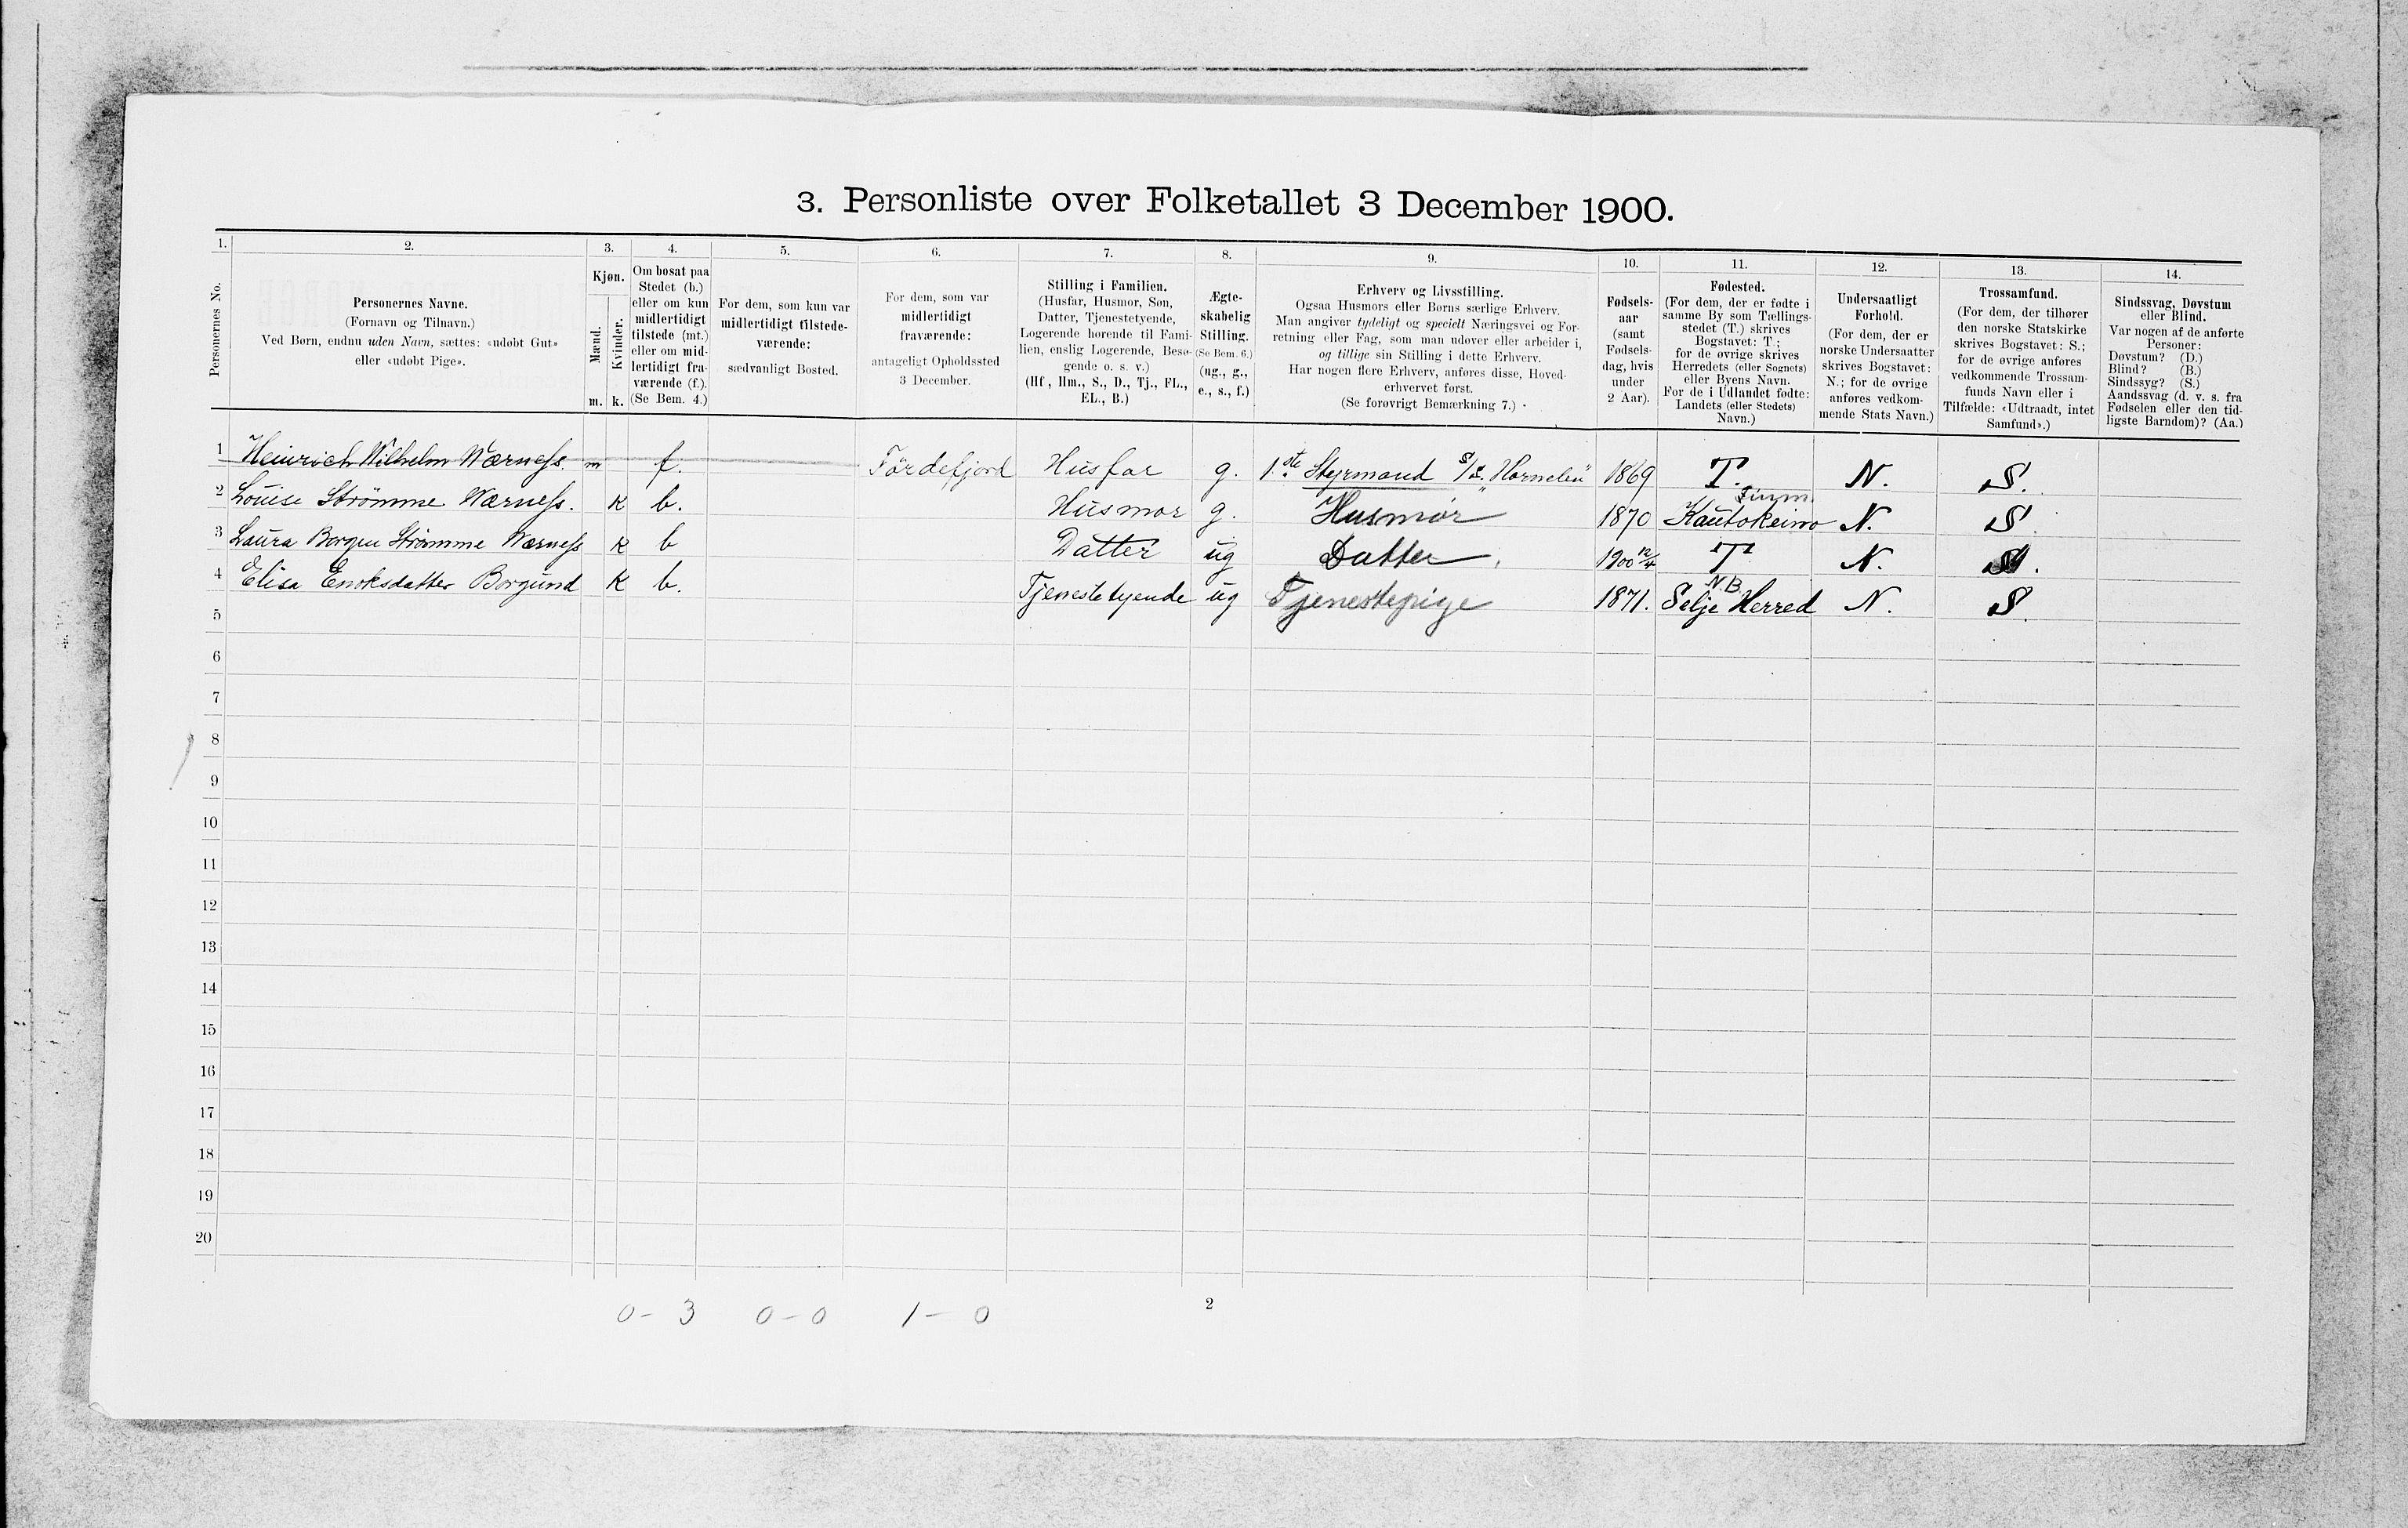 3. Personliste over Folketallet 3 December 1900.
1. 2. 3. 4. 5. 6. 7. 8. 9. 10. 11. 12. 13. 14.
Personernes No.
Personernes Navne.
(Fornavn og Tilnavn.)
Ved Børn, endnu uden Navn, sættes: «udøbt Gut»
eller «udøbt Pige».
Kjøn.
Mænd.
Kvinder.
m. k.
Om bosat paa
Stedet (b.)
eller om kun
midlertidigt
tilstede (mt.)
eller om mid-
lertidigt fra-
værende (f.).
(Se Bem. 4.)
For dem, som kun var
midlertidigt tilstede-
værende:
sædvanligt Bosted.
For dem, som var
midlertidigt
fraværende:
antageligt Opholdssted
3 December.
Stilling i Familien.
(Husfar, Husmor, Søn,
Datter, Tjenestetyende,
Logerende hørende til Fami-
lien, enslig Logerende, Besø-
gende o. s. v.)
(Hf, Hm., S., D., Tj., FL.,
EL., B.)
Ægte-
skabelig
Stilling.
(Se Bem. 6.)
(ug., g.,
e., s., f.)
Erhverv og Livsstilling.
Ogsaa Husmors eller Børns særlige Erhverv.
Man angiver tydeligt og specielt Næringsvei og For-
retning eller Fag, som man udøver eller arbeider i,
og tillige sin Stilling i dette Erhverv.
Har nogen flere Erhverv, anføres disse, Hoved-
erhvervet først.
(Se forøvrigt Bemærkning 7.)
Fødsels-
aar
(samt
Fødsels-
dag, hvis
under
2 Aar).
Fødested.
(For dem, der er fødte i
samme By som Tællings-
stedet (T.) skrives
Bogstavet: T.;
for de øvrige skrives
Herredets (eller Sognets)
eller Byens Navn.
For de i Udlandet fødte:
Landets (eller Stedets)
Navn.)
Undersaatligt
Forhold.
(For dem, der er
norske Undersaatter
skrives Bogstavet:
N.; for de øvrige
anføres vedkom-
mende Stats Navn.)
Trossamfund.
(For dem, der tilhører
den norske Statskirke
skrives Bogstavet: S.;
for de øvrige anføres
vedkommende Trossam-
funds Navn eller i
Tilfælde: «Udtraadt, intet
Samfund».)
Sindssvag, Døvstum
eller Blind.
Var nogen af de anførte
Personer:
Døvstum? (D.)
Blind? (B.)
Sindssyg? (S.)
Aandssvag (d. v. s. fra
Fødselen eller den tid-
ligste Barndom)? (Aa.)
1 Heinrich Wilhelm Wærness. m f. Førdefjord Husfar g. 1ste Styrmand S/S. "Hornelen" 1869 T. N. S.
2 Louise Strömme Wærness. k b. Husmor g. Husmor 1870 Kautokeino N. S.
3 Laura Borgen Strømme Wærness k b Datter ug Datter. 1900 12/4 T N. S.
NB
4 Elisa Enoksdatter Borgund k b. Tjenestetyende ug Tjenestepige 1871. Selje Herred N. S.
5
6
7
8
9
10
11
12
13
14
15
16
17
18
19
20
0-3 0-0 1-0
2